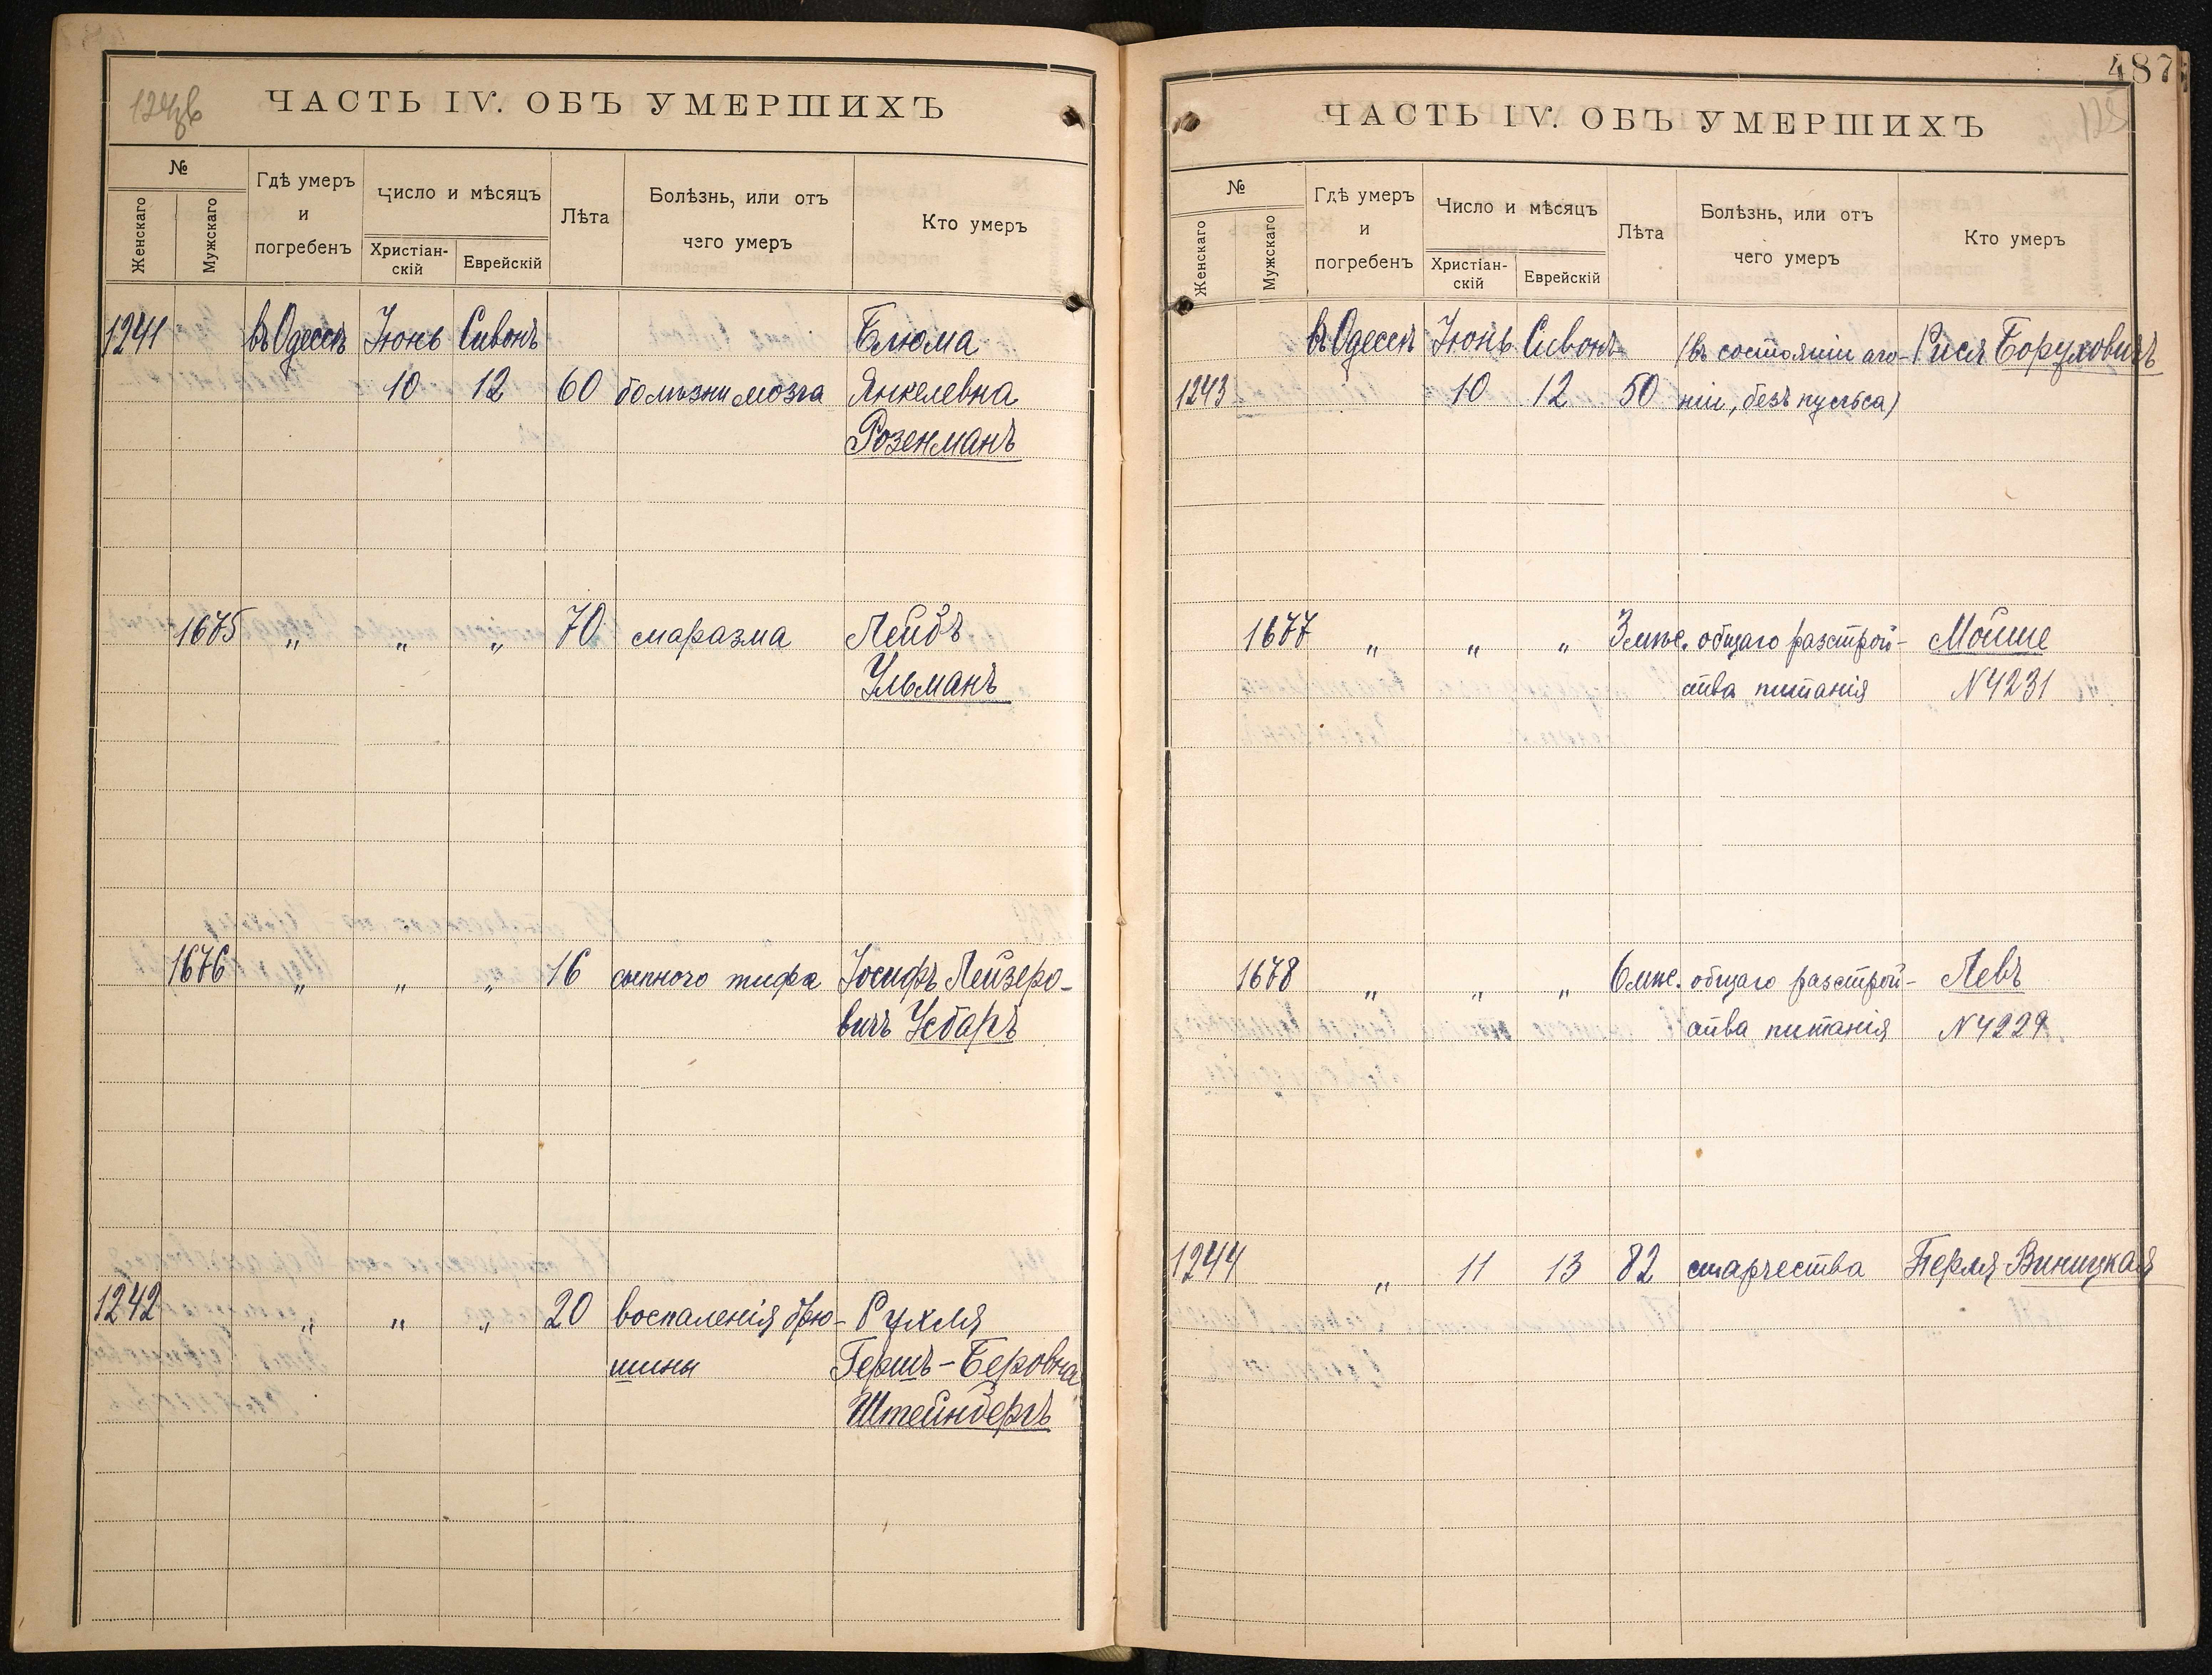 124об
ЧАСТЬ IV. ОБЪ УМЕРШИХЪ
№
Женскаго
Мужскаго
Гдѣ умеръ
и
погребенъ
Число и мѣсяцъ
Христіан-
скій
Еврейскій
Лѣта
Болѣзнь, или отъ
чего умеръ
Кто умеръ
1241 въ Одессѣ Іюнь Сивонъ Блюма
10 12 60 болѣзни мозга Янкелевна
Розенманъ
1675 „ „ „ 70 маразма Лейбъ
Ульманъ
1676 „ „ „ 16 сыпного тифа Іосифъ Лейзеро-
вичъ Усбаръ
1242 „ „ „ 20 воспаленія брю- Рухля
шины Гершъ-Беровна
Штейнбергъ
487
125
ЧАСТЬ IV. ОБЪ УМЕРШИХЪ
№
Женскаго
Мужскаго
Гдѣ умеръ
и
погребенъ
Число и мѣсяцъ
Христіан-
скій
Еврейскій
Лѣта
Болѣзнь, или отъ
чего умеръ
Кто умеръ
въ Одессѣ Іюнь Сивонъ (въ состояніи аго- Рися Боруховичъ
1243 10 12 50 ніи, безъ пульса)
1677 „ „ „ 3 мѣс. общаго разстрой- Мойше
ства питанія N4231
1678 „ „ „ 6 мѣс. общаго разстрой- Левъ
ства питанія N4229
1244 „ 11 13 82 старчества Перля Виницкая